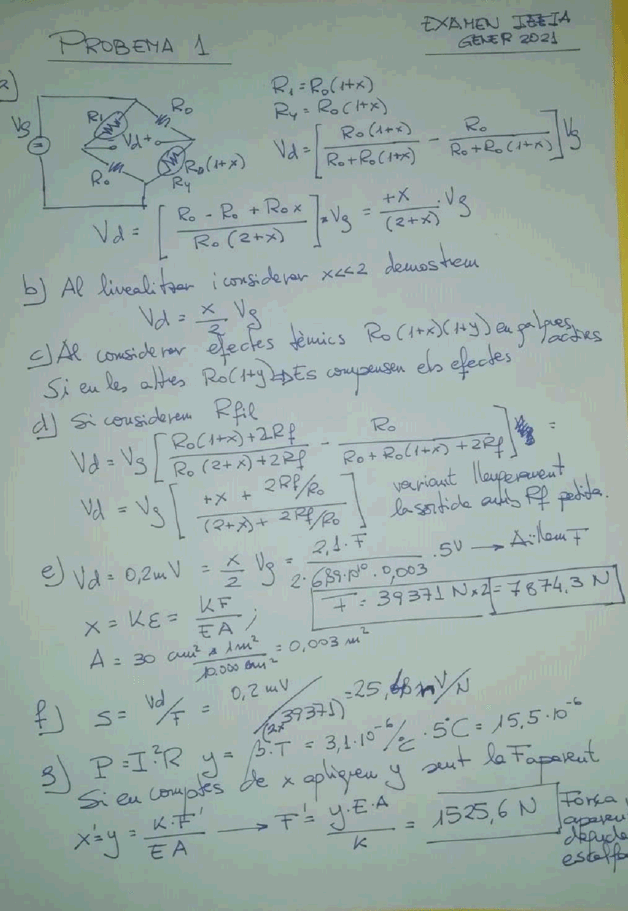 EXAMEN IEEIA
GENER 2021
PROBEMA 1
a)
R₁ = R₀(1+x)
R₄ = R₀(1+x)
Vg R₁ R₀ - Vd + R₀ R₀(1+x) R₄
Vd = [ R₀(1+x) / R₀+R₀(1+x) - R₀ / R₀+R₀(1+x) ] Vg
Vd = [ R₀ - R₀ + R₀x / R₀(2+x) ] · Vg = +x / (2+x) · Vg
b) Al linealitzar i considerar x<<2 demostrem
Vd = x/2 Vg
c) Al considerar efectes tèrmics R₀(1+x)(1+y) en galgues actives
Si en les altres R₀(1+y) ⇒ Es compensen els efectes
d) Si considerem Rfil
Vd = Vg [ R₀(1+x)+2Rf / R₀(2+x)+2Rf - R₀ / R₀+R₀(1+x)+2Rf ] =
Vd = Vg [ +x + 2Rf/R₀ / (2+x)+ 2Rf/R₀ ] variant lleugerament
la sortida amb Rf petita.
e) Vd = 0,2mV = x/2 Vg = 2,1·F / 2·689·10⁹·0,003 · 5V → Aïllem F
x = Kε = KF / EA ; F = 39371 N×2 = 7874,3 N
A = 30 cm² × 1m² / 10.000 cm² = 0,003 m²
f) S = Vd/F = 0,2 mV / (2×39371) = 25, V/N
g) P = I²R y = β·T = 3,1·10⁻⁶/°C · 5°C = 15,5·10⁻⁶
Si en comptes de x apliquem y sent la F aparent
x'=y = K·F' / EA → F' = y·E·A / K = 1525,6 N Força
aparent